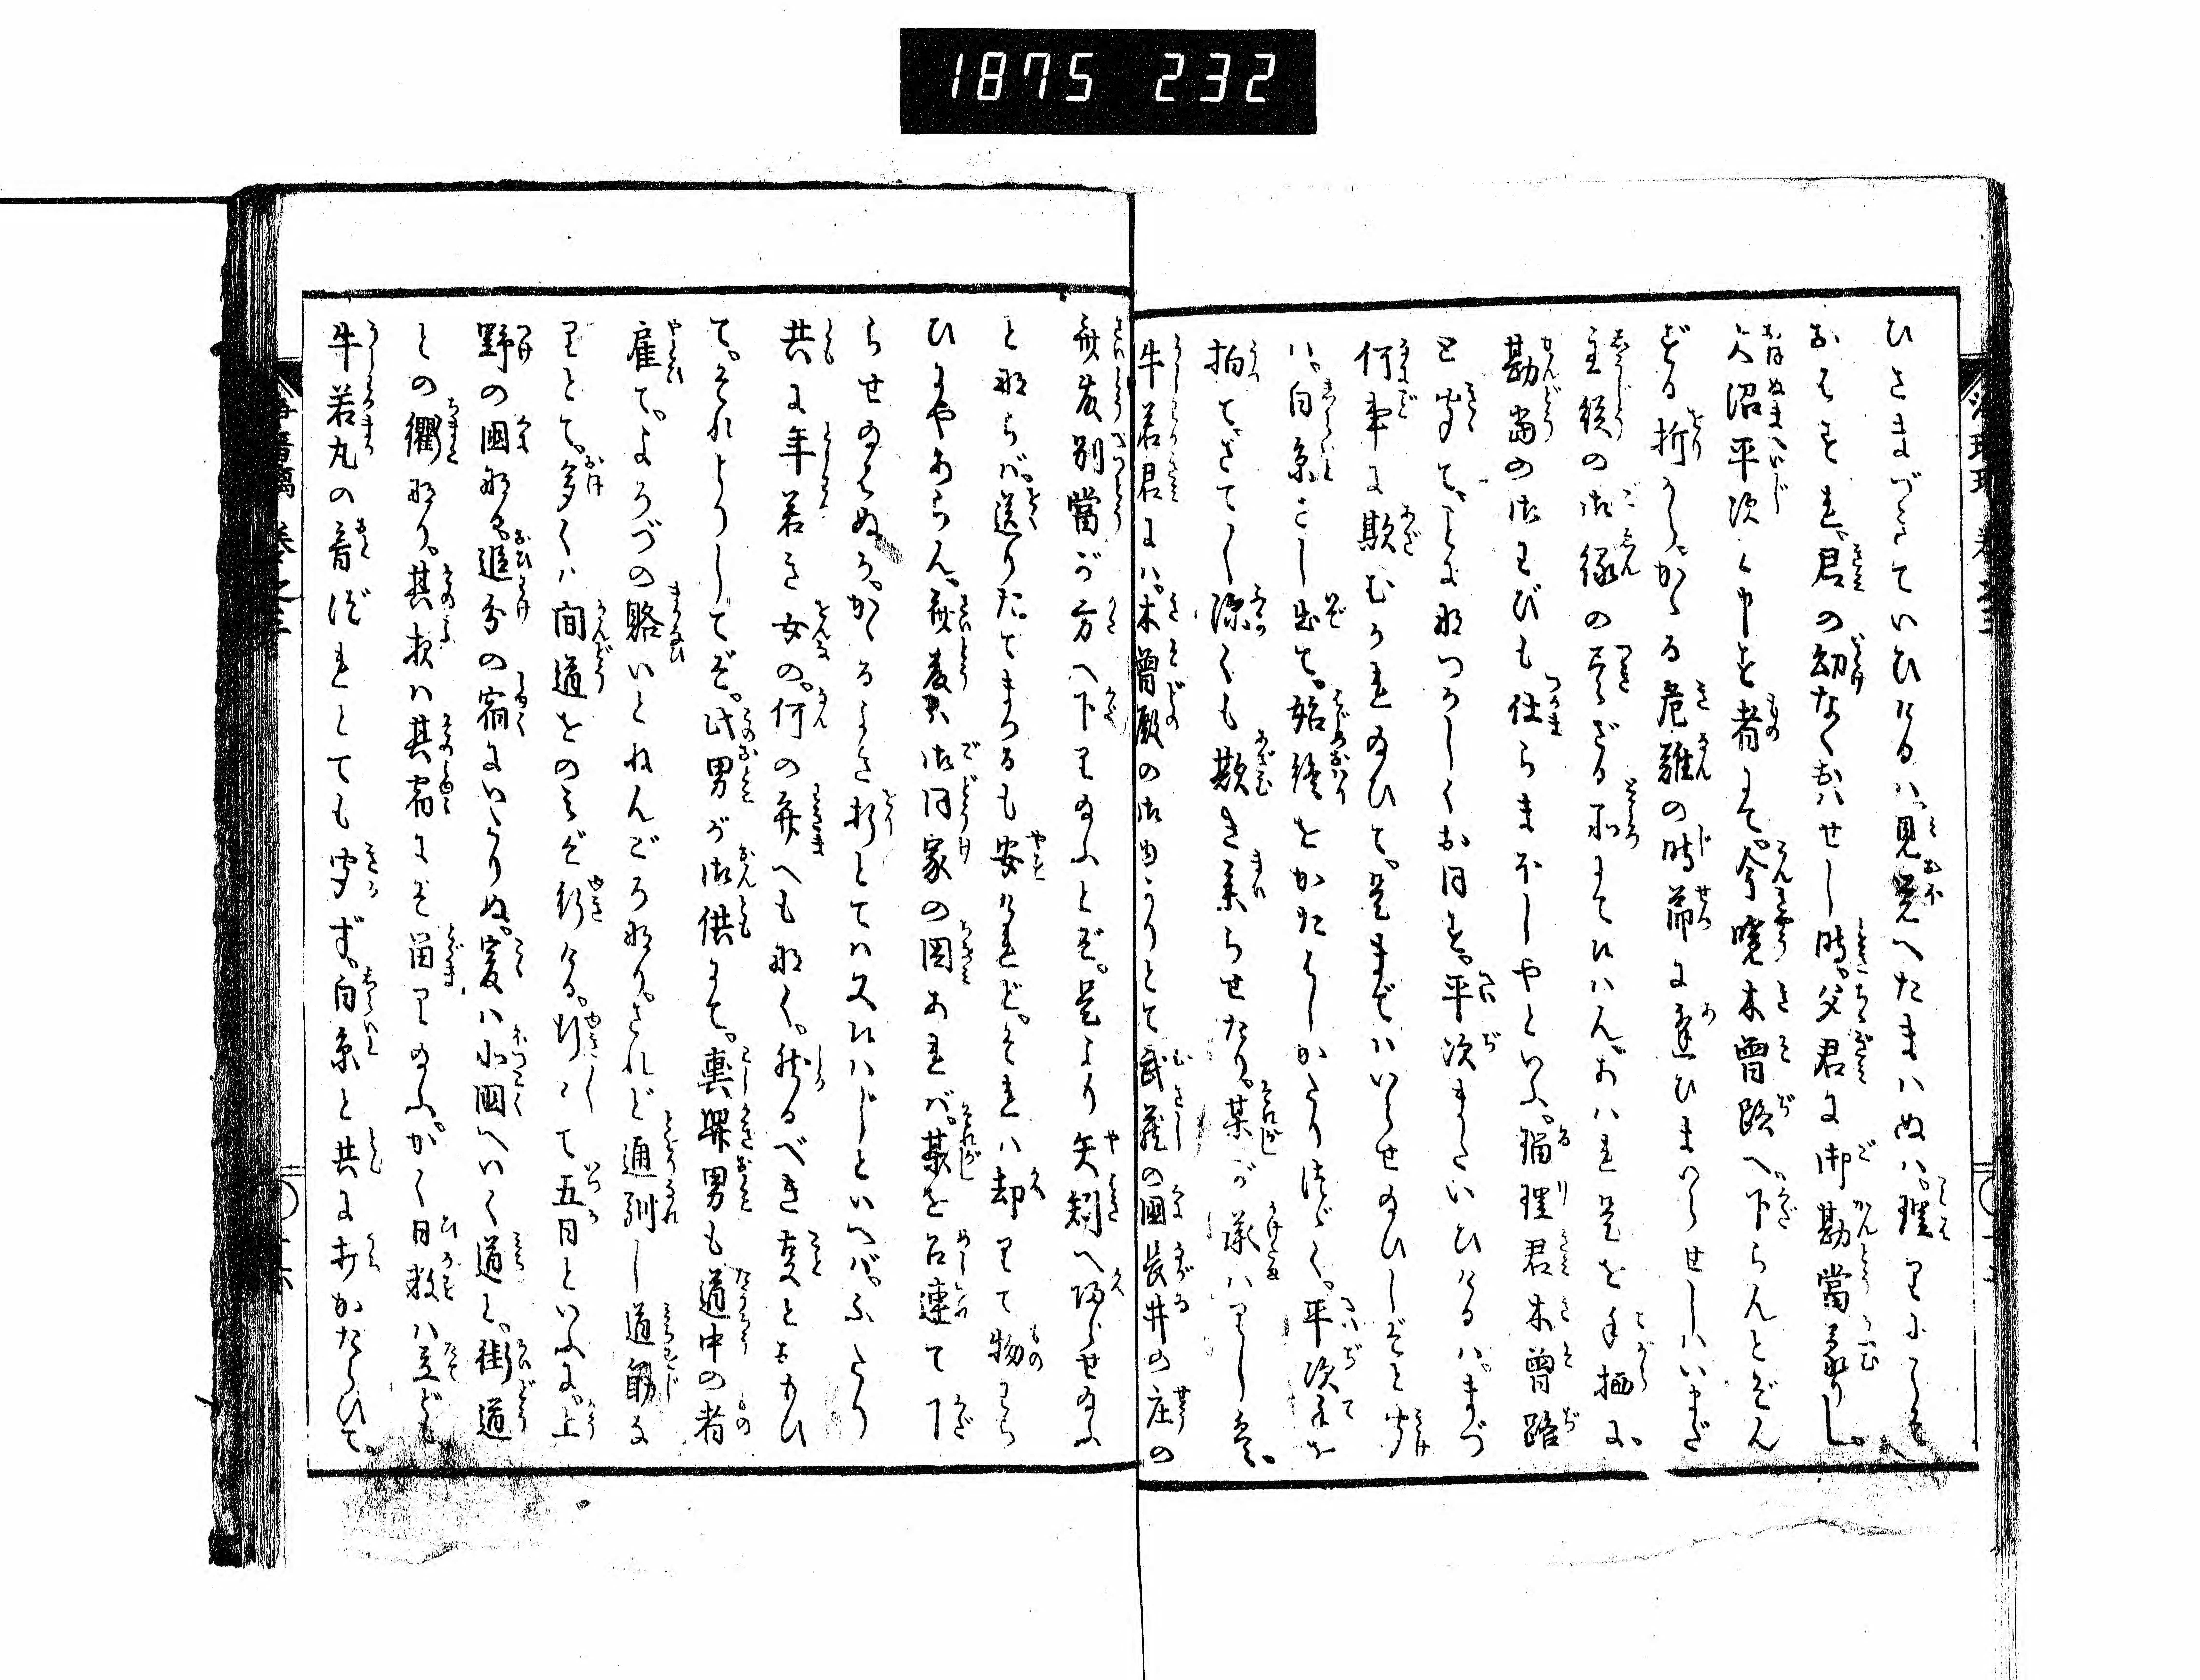 1875 232
ひさまづきていひけるハ見覚へたまハぬハ理りにこそ
おはすれ君の幼なくおハせし時父君に御勘當蒙りし
大沼平次と申す者にて今暁木曽路へ下らんとぞん
ずる折から かゝる危難の時節に逢ひまいらせしハいまだ
主従の御縁の尽ざる所にてハん あハれ是を手柄に
勘當の御わびも仕らまほしやといふ 瑠理君木曽路
と聞て とみになつかしくおぼす 平次またいひけるハまづ
何事に欺むかれ給ひて 是までハいらせ給ひしぞと聞
ハ 白糸さし出て 始終をかたりしかたりつゞく 平次手を
拍て さてし深くも欺き参らせたり 某が承ハりし
牛若君にハ 木曽殿の御内かりとて武蔵の國長井の庄の
斎藤別當が方へ下り給ふとぞ 是より矢矧へ帰らせ給ふ
とならバ 送りたてまつるも安けれど それハ却りて物わら
ひにやあらん 斎藤ハ御同家の因あれバ 某を召連て下
らせ給ハぬか かゝるよき折とてハ又ハじといへバ ふたり
共に年若き女の 何の弁へも無く 然るべき事とおもひ
て それよりしてぞ 此男が御供にて 輿舁男も道中の者
雇て よろづの賂いとねんごろ也 されど通馴し道筋な
りとて 多くハ間道をのみぞ行ける 行〳〵て五日といふに 上
野の國なる追分の宿にいたりぬ 爰ハ北國へいく道と 街道
との衢なり 其夜ハ其宿にぞ留り給ふ かく日数ハ立ども
牛若丸の音づれとても聞ず 白糸と共に打かたらひて